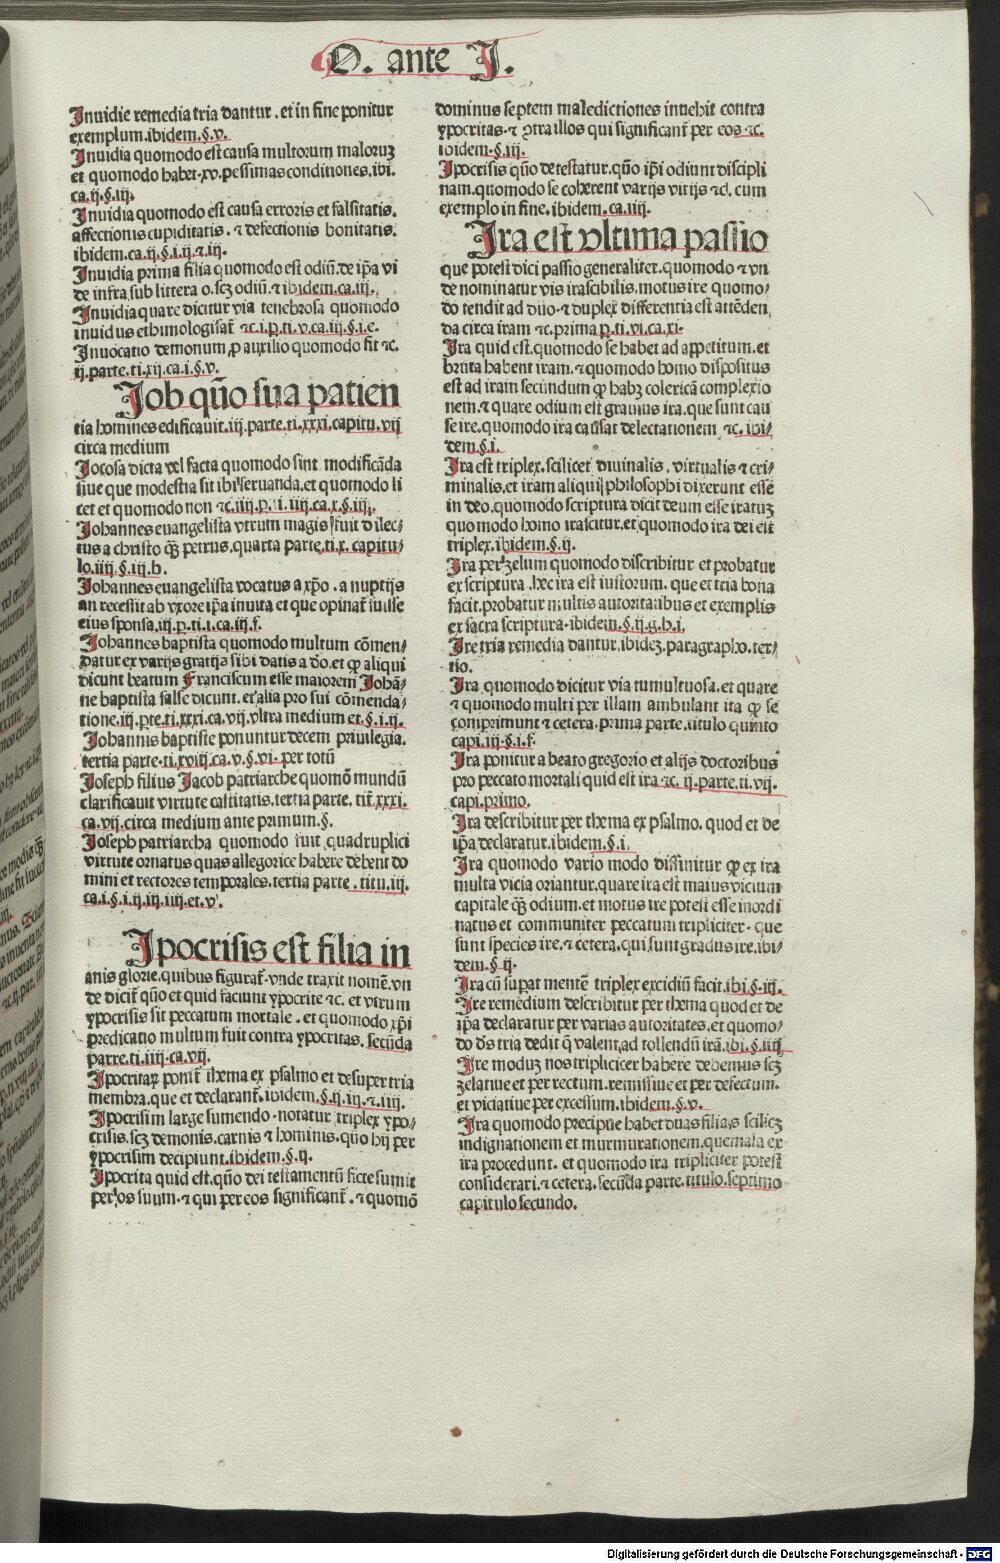 O. ante I.
Inuidie remedia tria dantur. et in fine ponitur
exemplum. ibidem. §. v.
Inuidia quomodo est causa multorum maloruꝫ
et quomodo habet. xv. pessimas conditiones. ibi.
ca. ij. §. iij.
Inuidia quomodo est causa erroris et falsitatis.
affectionis cupiditatis. ⁊ defectionis bonitatis.
ibidem. ca. ij. §. i. ij. ⁊. iij.
Inuidia prima filia quomodo est odiū. de ip̄a vi
de infra sub littera o. scꝫ odiū. ⁊ ibidem. ca. iij.
Inuidia quare dicitur via tenebrosa quomodo
inuidus ethimologisat̄ ⁊c. i. p. ti. v. ca. iij. §. i. e.
Inuocatio demonum ꝓ auxilio quomodo fit ⁊c.
ij. parte. ti. xij. ca. i. §. v.
Iob quō sua patien
tia homines edificauit. iij. parte. ti. xxxi. capitu. vij
circa medium
Iocosa dicta vel facta quomodo sint modificāda
siue que modestia sit ibi seruanda. et quomodo li
cet et quomodo non ⁊c. iiij. p. i. iiij. ca. x. §. iij.
Iohannes euangelista vtrum magis fuit dilec⸗
tus a christo qꝫ petrus. quarta parte. ti. x. capitu⸗
lo. iiij. §. iij. h.
Iohannes euangelista vocatus a xp̄o. a nuptijs
an recessit ab vxore ip̄a inuita et que opinat̄ fuisse
eius sponsa. iij. p. ti. i. ca. iij. f.
Iohannes baptista quomodo multum cōmen⸗
datur ex varijs gratijs sibi datis a deo. et ꝙ aliqui
dicunt beatum Franciscum esse maiorem Iohā⸗
ne baptista false dicunt. et alia pro sui cōmenda⸗
tione. iij. pte. ti. xxxi. ca. vij. vltra medium et. §. i. ij.
Iohannis baptiste ponuntur decem priuilegia.
tertia parte. ti. xviij. ca. v. §. vi. per totū
Ioseph filius Iacob patriarche quomō mundū
clarificauit virtute castitatis. tertia parte. tit̄. xxxi.
ca. vij. circa medium ante primum. §.
Ioseph patriarcha quomodo fuit quadruplici
virtute ornatus quas allegorice habere debent do
mini et rectores temporales. tertia parte. titu. iij.
ca. i. §. i. ij. iij. iiij. et. v.
Ipocrisis est filia in
anis glorie. quibus figurat̄. vnde traxit nomē. vn
de dicit̄ quō et quid faciunt ypocrite ⁊c. et vtrum
ypocrisis sit peccatum mortale. et quomodo xp̄i
predicatio multum fuit contra ypocritas. secūda
parte. ti. iiij. ca. vij.
Ipocritaꝝ ponit̄ thema ex psalmo et desuper tria
membra. que et declarant̄. ibidem. §. ij. iij. ⁊. iiij.
Ipocrisim large sumendo. notatur triplex ypo⸗
crisis. scꝫ demonis. carnis ⁊ hominis. quō hij per
ypocrisim decipiunt. ibidem. §. ij.
Ipocrita quid est. quō dei testamentū ficte sumit
per os suum. ⁊ qui per eos significant̄. ⁊ quomō
dominus septem maledictiones inuehit contra
ypocritas. ⁊ ꝯtra illos qui significant̄ per eos. ⁊c.
ibidem. §. iij.
Ipocrisis quō detestatur. quō ip̄i odiunt discipli
nam. quomodo se coherent varijs vitijs ⁊c̄. cum
exemplo in fine. ibidem. ca. viij.
Ira est vltima passio
que potest dici passio generaliter. quomodo ⁊ vn
de nominatur vis irascibilis. motus ire quomo⸗
do tendit ad duo. ⁊ duplex differentia est attēden
da circa iram ⁊c. prima p. ti. vi. ca. xi.
Ira quid est. quomodo se habet ad appetitum. et
bruta habent iram. ⁊ quomodo homo dispositus
est ad iram secundum ꝙ habꝫ colericā complexio
nem. ⁊ quare odium est grauius ira. que sunt cau
se ire. quomodo ira causat delectationem ⁊c. ibi⸗
dem. §. i.
Ira est triplex. scilicet diuinalis. virtualis ⁊ cri⸗
minalis. et iram aliqui philosophi dixerunt esse
in deo. quomodo scriptura dicit deum esse iratuꝫ
quomodo homo irascitur. et quomodo ira dei est
triplex. ibidem. §. ij.
Ira per zelum quomodo discribitur et probatur
ex scriptura. hec ira est iustorum. que et tria bona
facit. probatur multis autoritatibus et exemplis
ex sacra scriptura. ibidem. §. ij. g. h. i.
Ire tria remedia dantur. ibideꝫ. paragrapho. ter⸗
tio.
Ira quomodo dicitur via tumultuosa. et quare
⁊ quomodo multi per illam ambulant ita ꝙ se
comprimunt ⁊ cetera. prima parte. titulo quinto
capi. iij. §. i. f.
Ira ponitur a beato gregorio et alijs doctoribus
pro peccato mortali quid est ira ⁊c. ij. parte. ti. vij.
capi. primo.
Ira describitur per thema ex psalmo. quod et de
ip̄a declaratur. ibidem. §. i.
Ira quomodo vario modo diffinitur ꝙ ex ira
multa vicia oriantur. quare ira est maius vicium
capitale qꝫ odium. et motus ire potest esse inordi
natus et communiter peccatum tripliciter. que
sunt species ire. ⁊ cetera. qui sunt gradus ire. ibi⸗
dem. §. ij.
Ira cū supat mentē triplex excidiū facit. ibi. §. iij.
Ire remedium describitur per thema quod et de
ip̄a declaratur per varias autoritates. et quomo⸗
do dn̄s tria dedit q̄ valent ad tollendū irā. ibi. §. iiij
Ire moduꝫ nos tripliciter habere debemus scꝫ
zelatiue et per rectum. remissiue et per defectum.
et viciatiue per excessum. ibidem. §. v.
Ira quomodo precipue habet duas filias scilicꝫ
indignationem et murmurationem. que mala ex
ira procedunt. et quomodo ira tripliciter potest
considerari. ⁊ cetera. secūda parte. titulo. septimo
capitulo. secundo.
Digitalisierung gefördert durch die Deutsche Forschungsgemeinschaft - DFG